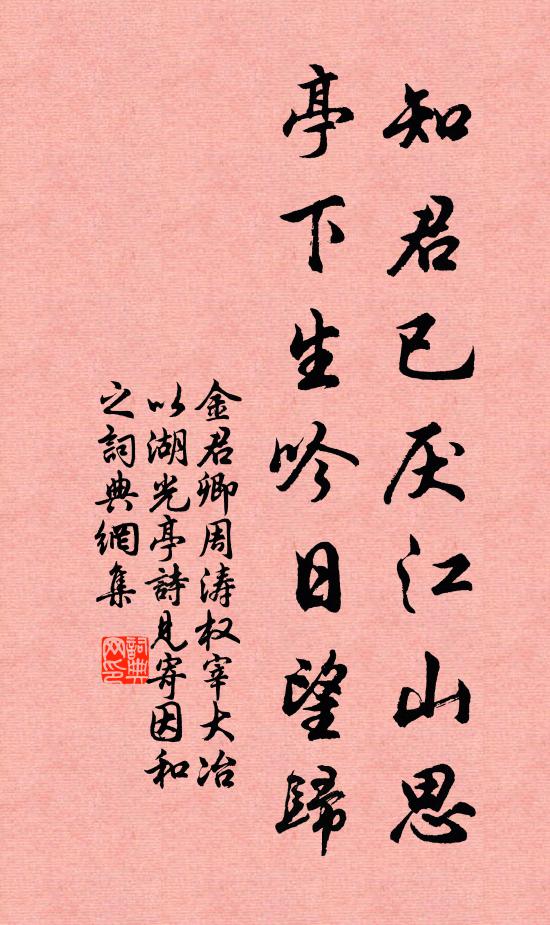 知君已厌江山思
亭下生吟日望歸
金君卿周濤权宰大冶
以湖光亭詩見寄因和
之詞典網集
詞典网印